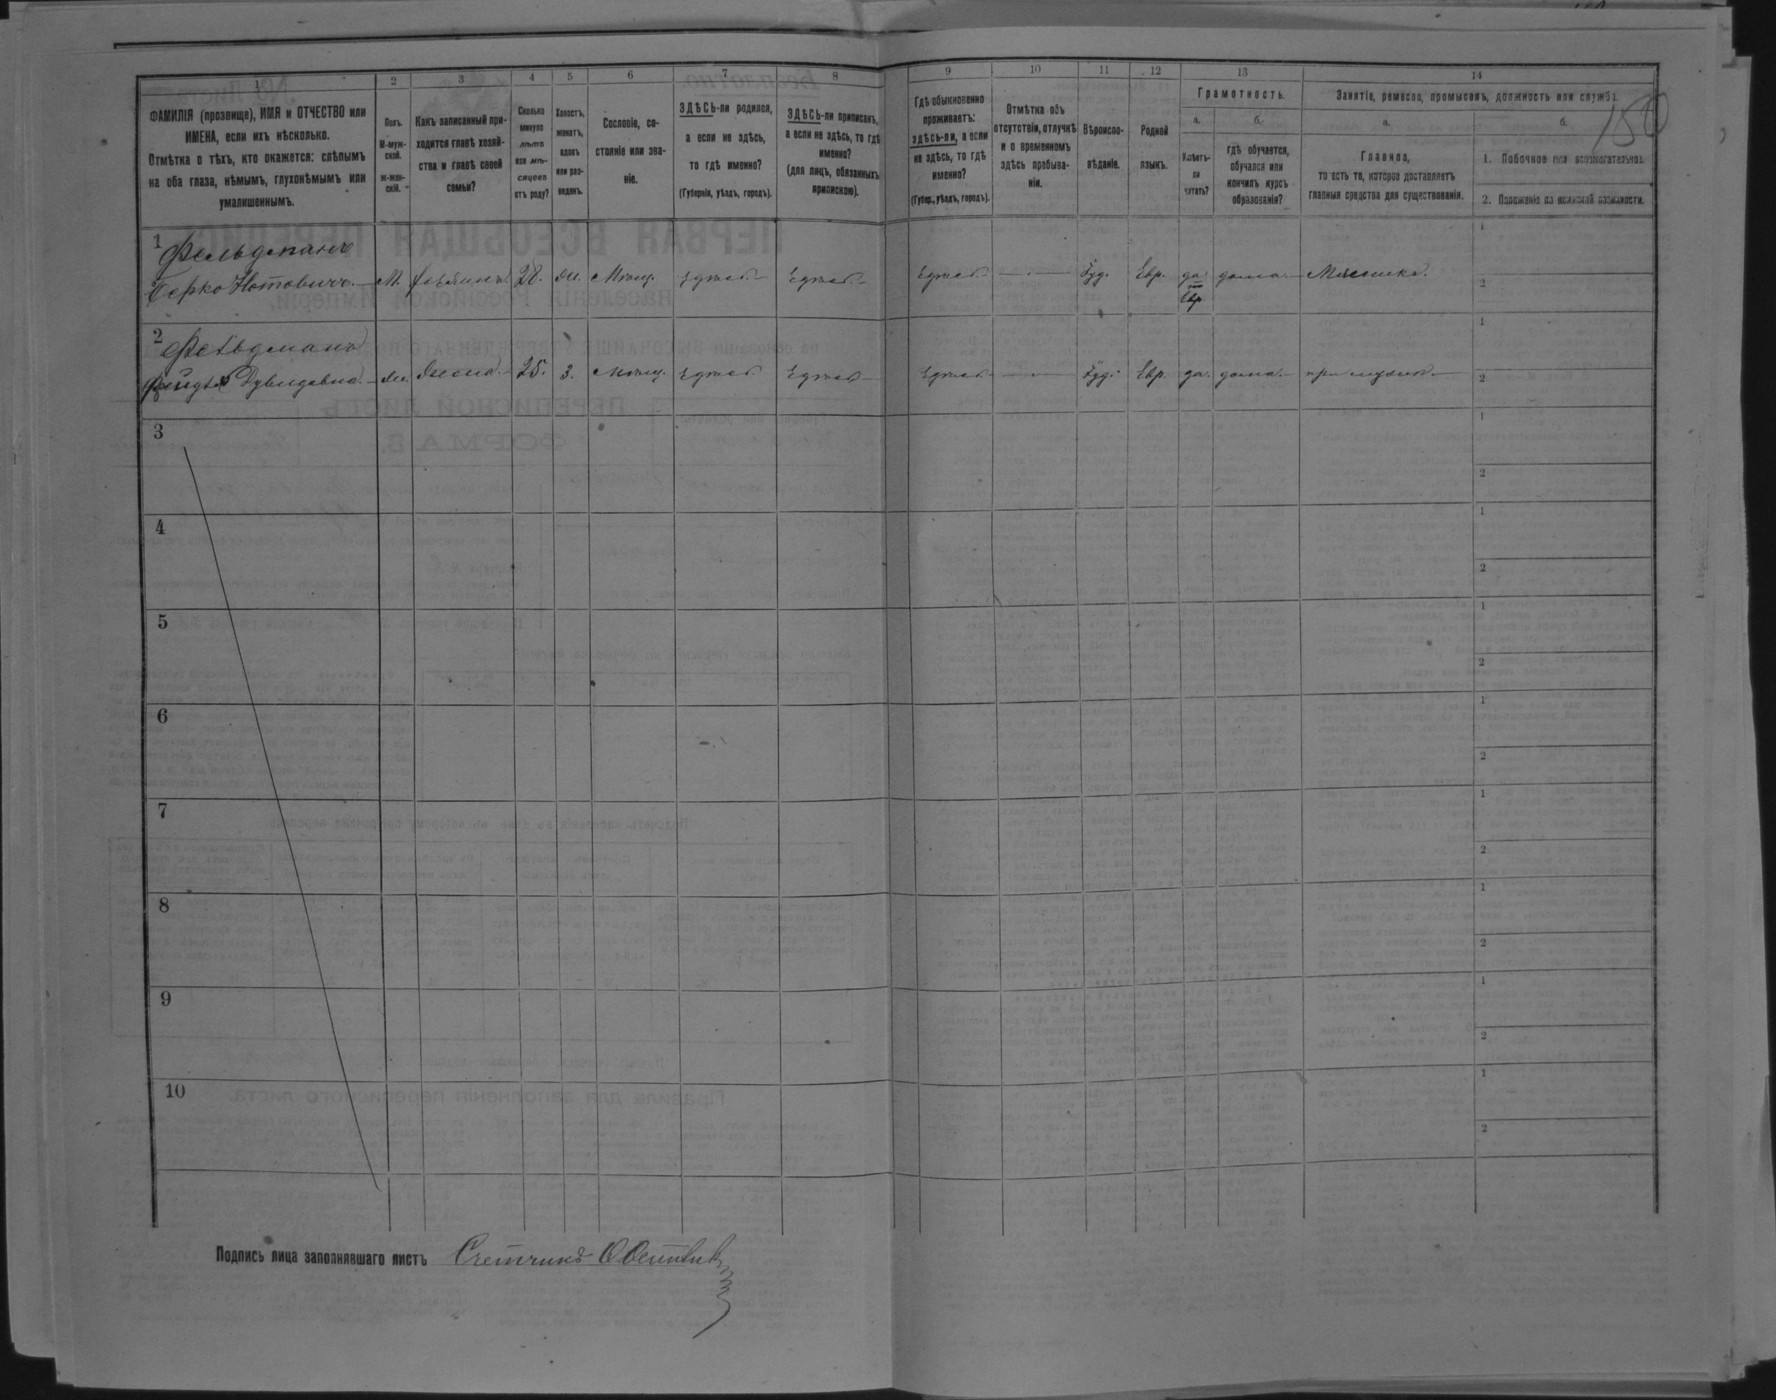 1
ФАМИЛІЯ (прозвище), ИМЯ и ОТЧЕСТВО или
ИМЕНА, если ихъ нѣсколько.
Отмѣтка о тѣхъ, кто окажется: слѣпымъ
на оба глаза, нѣмымъ, глухонѣмымъ или
умалишеннымъ.
2
Полъ.
М-муж-
ской.
Ж-жен-
скій.
3
Какъ записанный при-
ходится главѣ хозяй-
ства и главѣ своей
семьи?
4
Сколько
минуло
лѣтъ
или мѣ-
сяцевъ
отъ роду?
5
Холостъ,
женатъ,
вдовъ
или раз-
веденъ.
6
Сословіе, со-
стояніе или зва-
ніе.
7
ЗДѢСЬ-ли родился,
а если не здѣсь,
то гдѣ именно?
(Губернія, уѣздъ, городъ).
8
ЗДѢСЬ-ли приписанъ,
а если не здѣсь, то гдѣ
именно?
(для лицъ, обязанныхъ
припискою).
9
Гдѣ обыкновенно
проживаетъ:
здѣсь-ли, а если
не здѣсь, то гдѣ
именно?
(Губер., уѣздъ, городъ).
10
Отмѣтка объ
отсутствіи, отлучкѣ
и о временномъ
здѣсь пребыва-
ніи.
11
Вѣроиспо-
вѣданіе.
12
Родной
языкъ.
13
Грамотность.
а.
Умѣетъ-
ли
читать?
б.
гдѣ обучается,
обучался или
кончилъ курсъ
образованія?
14
Занятіе, ремесло, промыселъ, должность или служба.
а.
Главное,
то есть то, которое доставляетъ
главныя средства для существованія.
б.
1. Побочное или вспомогательное.
2. Положеніе по воинской повинности.
1 Фельдманъ
Берко Нотовичъ М. хозяинъ 28. жен. мѣщ. здѣсь здѣсь здѣсь Іуд. Евр. да дома
Евр.
1
2
2 Фельдманъ
Дувидовна жен. жена 25. з. мѣщ. здѣсь здѣсь здѣсь Іуд. Евр. да. дома при мужѣ
1
2
3
1
2
4
1
2
5
1
2
6
1
2
7
1
2
8
1
2
9
1
2
10
1
2
Подпись лица заполнявшаго листъ Счетчикъ